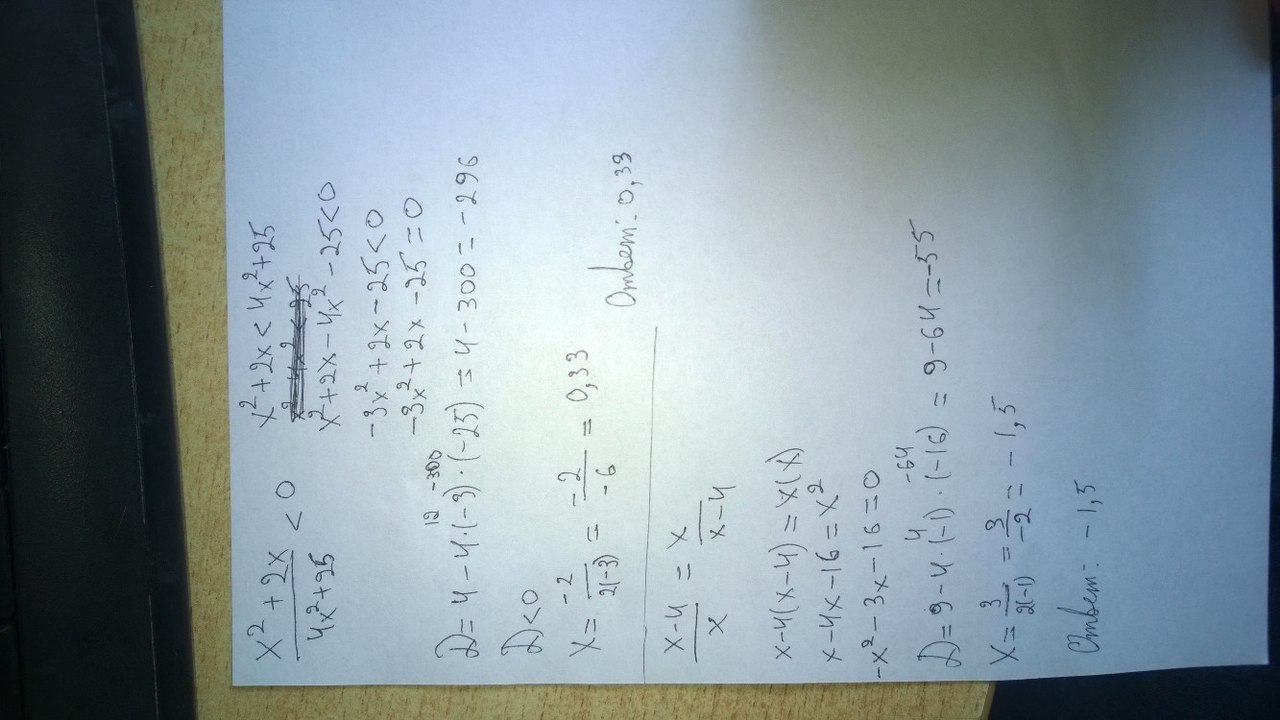 x²+2x / 4x²+25 < 0
x²+2x < 4x²+25
x²+2x-4x²-25<0
-3x²+2x-25<0
-3x²+2x-25=0
12 -300
D=4-4·(-3)·(-25)=4-300=-296
D<0
x= -2 / 2(-3) = -2 / -6 = 0,33
Ответ: 0,33
x-4 / x = x / x-4
x-4(x-4)=x(x)
x-4x-16=x²
-x²-3x-16=0
4 -64
D=9-4·(-1)·(-16)=9-64=-55
x= 3 / 2(-1) = 3 / -2 = -1,5
Ответ: -1,5